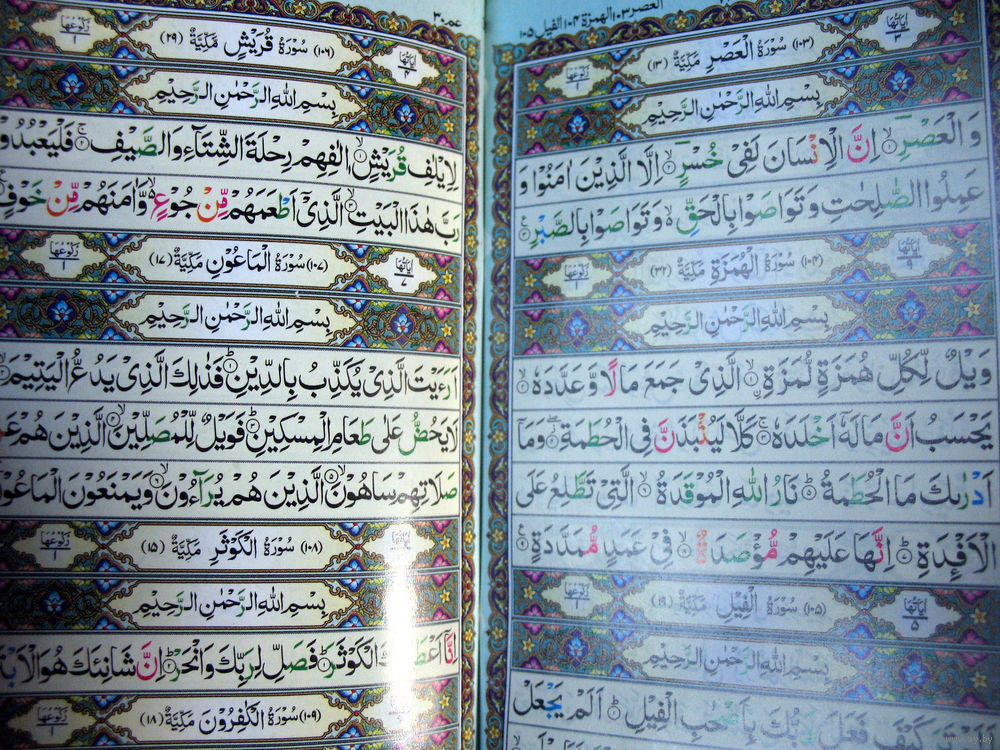 العصر ١٠٣ الهمزة ١٠٤ الفيل ١٠٥
اٰیَاتُهَا ٣ (١٠٣) سُوْرَةُ الْعَصْرِ مَكِّیَّةٌ (١٣) رُكُوْعُهَا ١
بِسْمِ اللّٰهِ الرَّحْمٰنِ الرَّحِیْمِ
وَ الْعَصْرِۙ۝ اِنَّ الْاِنْسَانَ لَفِیْ خُسْرٍۙ۝ اِلَّا الَّذِیْنَ اٰمَنُوْا وَ
عَمِلُوا الصّٰلِحٰتِ وَ تَوَاصَوْا بِالْحَقِّ ۙ۬ وَ تَوَاصَوْا بِالصَّبْرِ۝
اٰیَاتُهَا ٩ (١٠٤) سُوْرَةُ الْهُمَزَةِ مَكِّیَّةٌ (٣٢) رُكُوْعُهَا ١
بِسْمِ اللّٰهِ الرَّحْمٰنِ الرَّحِیْمِ
وَیْلٌ لِّكُلِّ هُمَزَةٍ لُّمَزَةِ ۙ۝ الَّذِیْ جَمَعَ مَالًا وَّ عَدَّدَهٗ ۙ۝
یَحْسَبُ اَنَّ مَالَهٗۤ اَخْلَدَهٗ ۚ۝ كَلَّا لَیُنْۢبَذَنَّ فِی الْحُطَمَةِ ؗۖ۝ وَ مَاۤ
اَدْرٰىكَ مَا الْحُطَمَةُ ؕ۝ نَارُ اللّٰهِ الْمُوْقَدَةُ ۙ۝ الَّتِیْ تَطَّلِعُ عَلَى
الْاَفْـِٕدَةِ ؕ۝ اِنَّهَا عَلَیْهِمْ مُّؤْصَدَةٌ ۙ۝ فِیْ عَمَدٍ مُّمَدَّدَةٍ۝
اٰیَاتُهَا ٥ (١٠٥) سُوْرَةُ الْفِیْلِ مَكِّیَّةٌ (١٩) رُكُوْعُهَا ١
بِسْمِ اللّٰهِ الرَّحْمٰنِ الرَّحِیْمِ
اَلَمْ تَرَ كَیْفَ فَعَلَ رَبُّكَ بِاَصْحٰبِ الْفِیْلِ ؕ۝ اَلَمْ یَجْعَلْ
عم ٣٠
اٰیَاتُهَا ٤ (١٠٦) سُوْرَةُ قُرَیْشٍ مَكِّیَّةٌ (٢٩) رُكُوْعُهَا ١
بِسْمِ اللّٰهِ الرَّحْمٰنِ الرَّحِیْمِ
لِاِیْلٰفِ قُرَیْشٍۙ۝ اٖلٰفِهِمْ رِحْلَةَ الشِّتَآءِ وَ الصَّیْفِۚ۝ فَلْیَعْبُدُوْا
رَبَّ هٰذَا الْبَیْتِۙ۝ الَّذِیْۤ اَطْعَمَهُمْ مِّنْ جُوْعٍ ۙ۬ وَّ اٰمَنَهُمْ مِّنْ خَوْفٍ
اٰیَاتُهَا ٧ (١٠٧) سُوْرَةُ الْمَاعُوْنِ مَكِّیَّةٌ (١٧) رُكُوْعُهَا ١
بِسْمِ اللّٰهِ الرَّحْمٰنِ الرَّحِیْمِ
اَرَءَیْتَ الَّذِیْ یُكَذِّبُ بِالدِّیْنِؕ۝ فَذٰلِكَ الَّذِیْ یَدُعُّ الْیَتِیْمَۙ۝
لَا یَحُضُّ عَلٰى طَعَامِ الْمِسْكِیْنِؕ۝ فَوَیْلٌ لِّلْمُصَلِّیْنَۙ۝ الَّذِیْنَ هُمْ
صَلَاتِهِمْ سَاهُوْنَۙ۝ الَّذِیْنَ هُمْ یُرَآءُوْنَۙ۝ وَ یَمْنَعُوْنَ الْمَاعُوْنَ
(١٠٨) سُوْرَةُ الْكَوْثَرِ مَكِّیَّةٌ (١٥) رُكُوْعُهَا ١
بِسْمِ اللّٰهِ الرَّحْمٰنِ الرَّحِیْمِ
اِنَّاۤ اَعْطَیْنٰكَ الْكَوْثَرَؕ۝ فَصَلِّ لِرَبِّكَ وَ انْحَرْؕ۝ اِنَّ شَانِئَكَ هُوَ الْاَبْتَرُ
(١٠٩) سُوْرَةُ الْكٰفِرُوْنَ مَكِّیَّةٌ (١٨) رُكُوْعُهَا ١